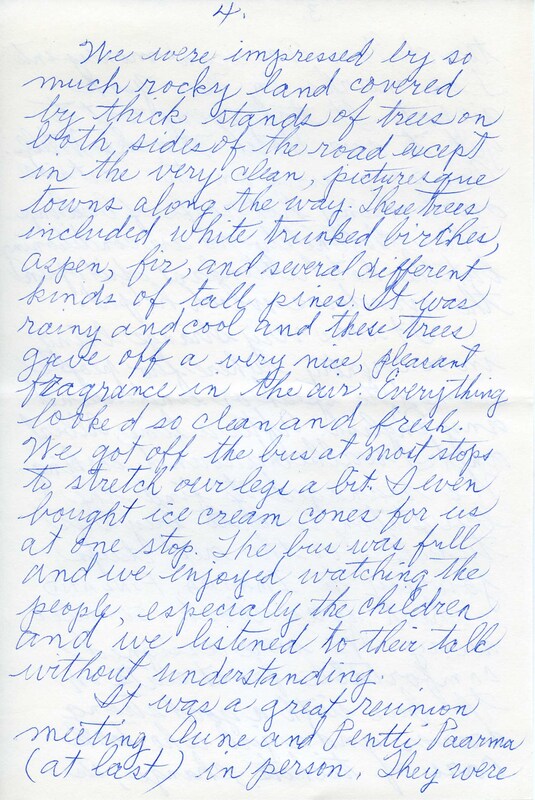 4.
We were impressed by so
much rocky land covered
by thick stands of trees on
both sides of the road except
in the very clean, picturesque
towns along the way. These trees
included white trunked birches,
aspen, fir, and several different
kinds of tall pines. It was
rainy and cool and these trees
gave off a very nice, pleasant
fragrance in the air. Everything
looked so clean and fresh.
We got off the bus at most stops
to stretch our legs a bit. I even
bought ice cream cones for us
at one stop. The bus was full
and we enjoyed watching the
people, especially the children
and we listened to their talk
without understanding.
It was a great reunion
meeting Aune and Pentti Paarma
(at last) in person. They were